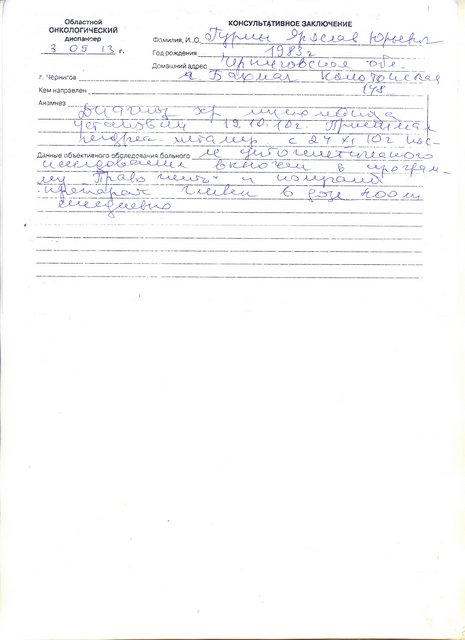 Областной
ОНКОЛОГИЧЕСКИЙ
диспансер
3 05 13 г.
г. Чернигов
КОНСУЛЬТАТИВНОЕ ЗАКЛЮЧЕНИЕ
Фамилия, И.,О. Ярослав Юрьевич
Год рождения 1983 г
Домашний адрес обл.
г Бахмач
Кем направлен 148
Анамнез
Диагноз хр
установлен 19.10.10г. Принимал
с 24 XI 10г пос-
Данные объективного обследования больного ле цитогенетического
исследования включен в програм-
му и получает
препарат Гливек в дозе 400 мг
ежедневно